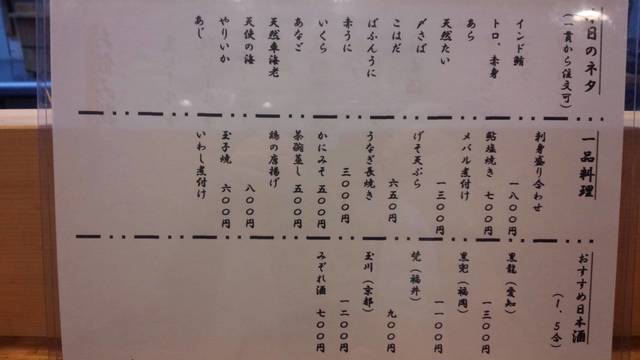 日のネタ
(一貫から注文可)
インド鮪
トロ、赤身
あら
天然たい
〆さば
こはだ
ばふんうに
赤うに
いくら
あなご
天然車海老
天使の海
やりいか
あじ
一品料理
刺身盛り合わせ
一八〇〇円
鮎塩焼き 七〇〇円
メバル煮付け
一三〇〇円
げそ天ぷら
六五〇円
うなぎ長焼き
三〇〇〇円
かにみそ 五〇〇円
茶碗蒸し 五〇〇円
鶏の唐揚げ
八〇〇円
玉子焼 六〇〇円
いわし煮付け
おすすめ日本酒
(1.5合)
黒龍(愛知)
一三〇〇円
黒兜(福岡)
一一〇〇円
梵(福井)
九〇〇円
玉川(京都)
一二〇〇円
みぞれ酒 七〇〇円